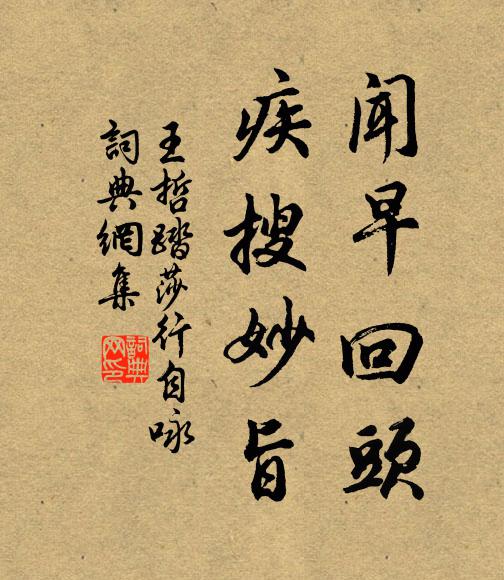 闻早回頭
疾搜妙旨
王哲踏莎行自咏
詞典網集
詞典
网印